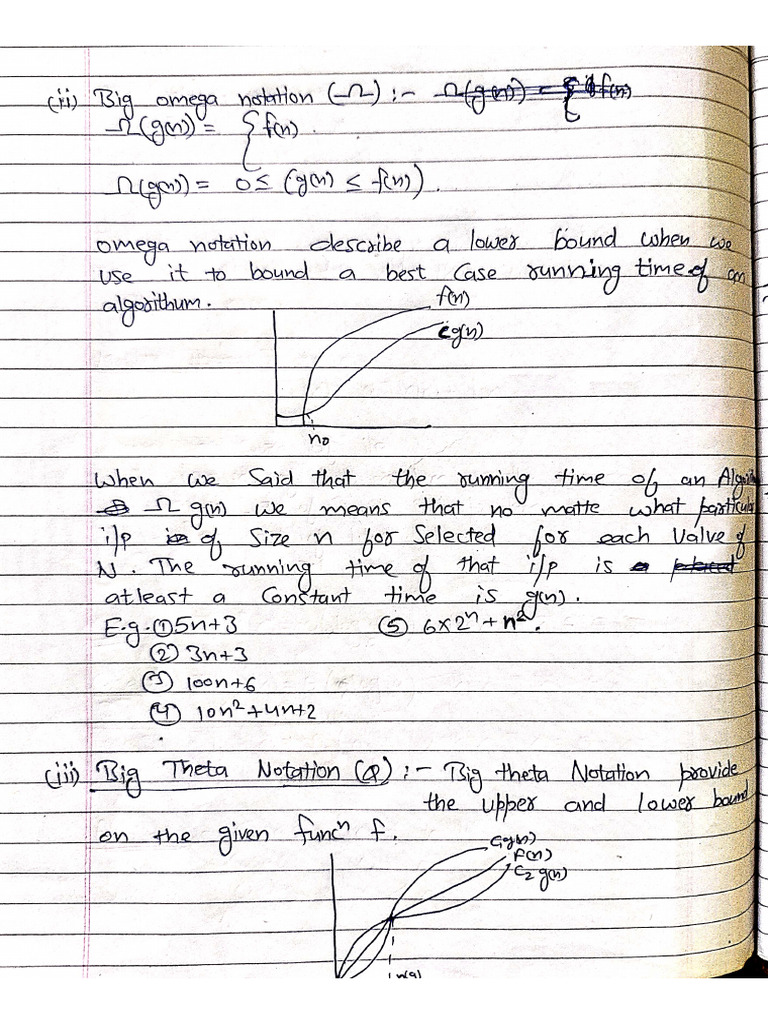 (ii) Big omega notation (Ω) :- Ω(g(n)) = { f(n)
Ω(g(n)) = { f(n).
Ω(g(n)) = 0 ≤ (g(n) ≤ f(n)).
omega notation describe a lower bound when we
use it to bound a best case running time of an
algorithum.
f(n)
cg(n)
n₀
When we said that the running time of an
Ω g(n) we means that no matte what
i/p of size n for selected for each value of
N. The running time of that i/p is
atleast a constant time is g(n).
E.g. ① 5n+3 ⑤ 6×2ⁿ+n².
② 3n+3
③ 100n+6
④ 10n²+4n+2
(iii) Big Theta Notation (Q) :- Big theta Notation provide
the upper and lower bound
on the given funcⁿ f.
C₁g(n)
f(n)
C₂ g(n)